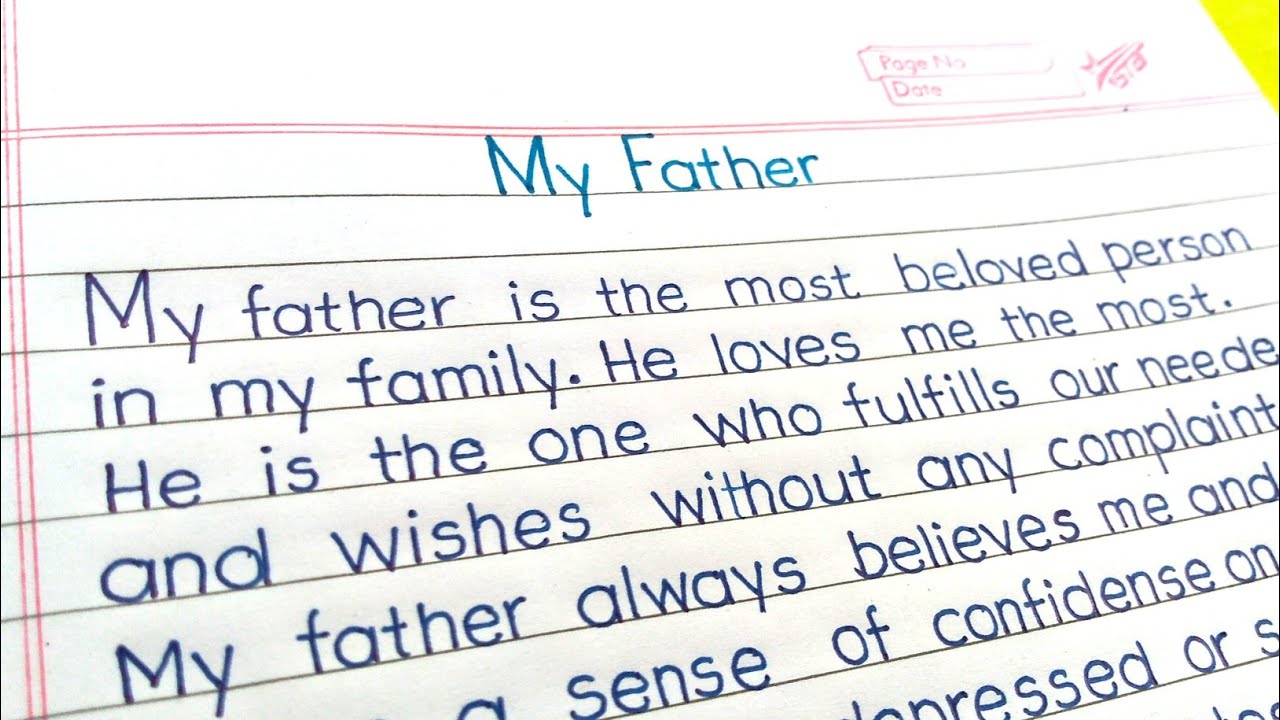 Page No
Date
My Father
My father is the most beloved person
in my family. He loves me the most.
He is the one who fulfills our neede
and wishes without any complaint
My father always believes me and
a sense of confidense on
depressed or s